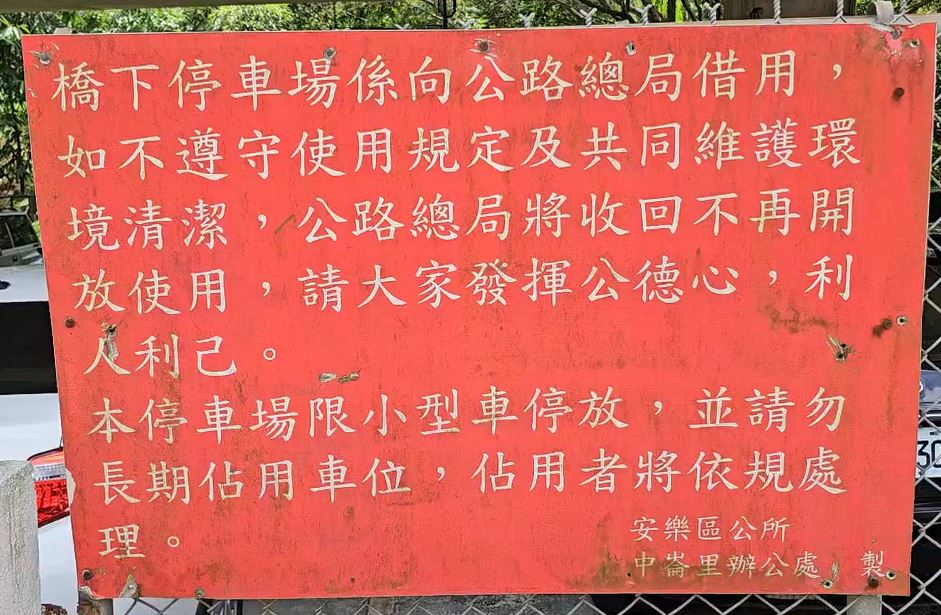 橋下停車場係向公路總局借用，
如不遵守使用規定及共同維護環
境清潔，公路總局將收回不再開
放使用，請大家發揮公德心，利
人利己。
本停車場限小型車停放，並請勿
長期佔用車位，佔用者將依規處
理。
安樂區公所
中崙里辦公處 製